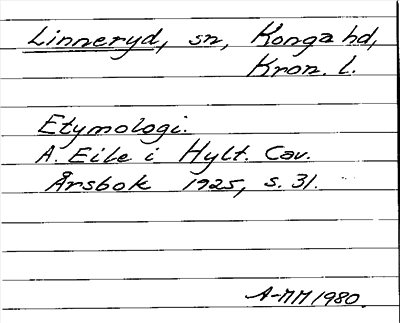 Linneryd, sn, Konga hd,
Kron. l.
Etymologi.
A. Eile i Hylt. Cav.
Årsbok 1925, s. 31.
A-MM 1980.